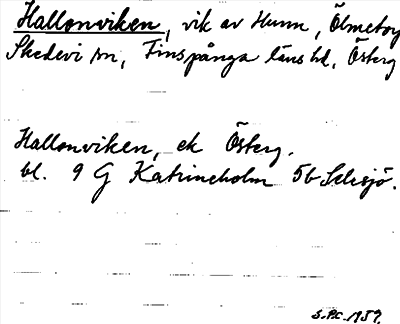 Hallonviken, vik av Hunn, Ölmetorp
Skedevi sn, Finspånga läns hd, Österg
Hallonviken, ek Österg.
bl. 9 G Katrineholm 5b
S.P.C. 1959.